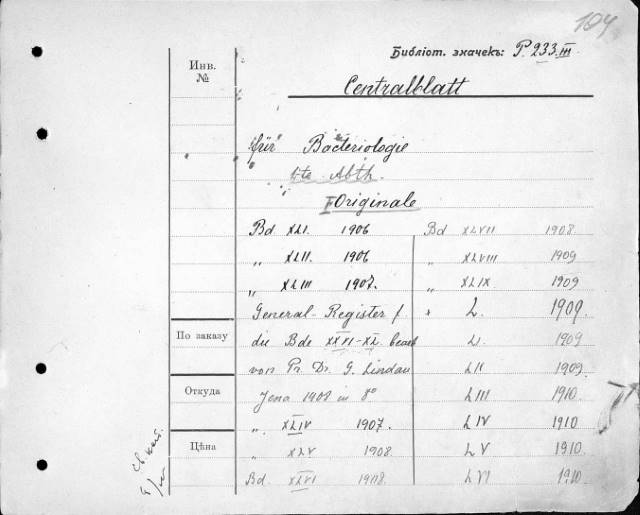 104
Библіот. значекъ: P. 233.III
Инв.
№
Centralblatt
für Bacteriologie
1te Abth.
I Originale
Bd XLI. 1906
„ XLII. 1906
„ XLIII 1907.
General-Register f.
die Bde XXVI-XL. bearb
von Pr. Dr. G. Lindau
Jena 1908 in 8°
„ XLIV 1907.
„ XLV 1908.
Bd. XLVI 1908.
Bd XLVII 1908.
„ XLVIII 1909
„ XLIX 1909
„ L. 1909.
L. 1909
LII 1909.
LIII 1910
LIV 1910
LV 1910.
LVI 1910
По заказу
Откуда
Цѣна